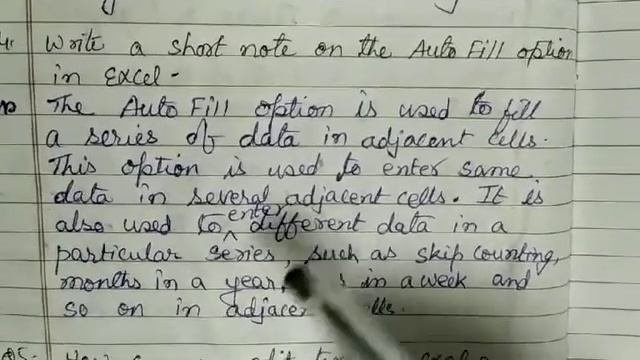 Write a short note on the Auto Fill option
in Excel -
The Auto Fill option is used to fill
a series of data in adjacent cells.
This option is used to enter same
data in several adjacent cells. It is
also used to enter different data in a
particular series, such as skip counting,
months in a year, in a week and
so on in